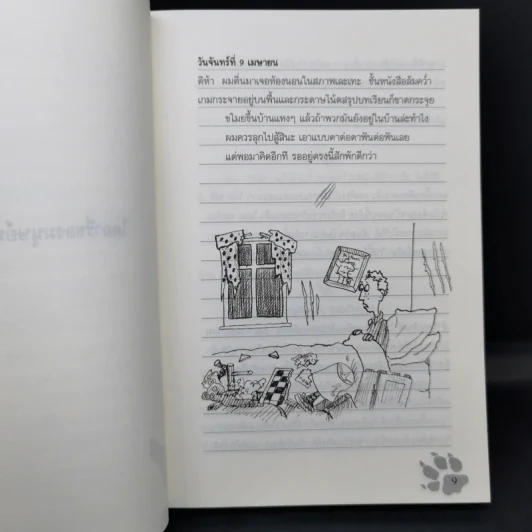 วันจันทร์ที่ 9 เมษายน
ตีห้า ผมตื่นมาเจอห้องนอนในสภาพเละเทะ ชั้นหนังสือล้มคว่ำ
เกมกระจายอยู่บนพื้นและกระดาษโน้ตสรุปบทเรียนก็ขาดกระจุย
ขโมยขึ้นบ้านแหงๆ แล้วถ้าพวกมันยังอยู่ในบ้านล่ะทำไง
ผมควรลุกไปสู้สินะ เอาแบบตาต่อตาฟันต่อฟันเลย
แต่พอมาคิดอีกที รออยู่ตรงนี้สักพักดีกว่า
9